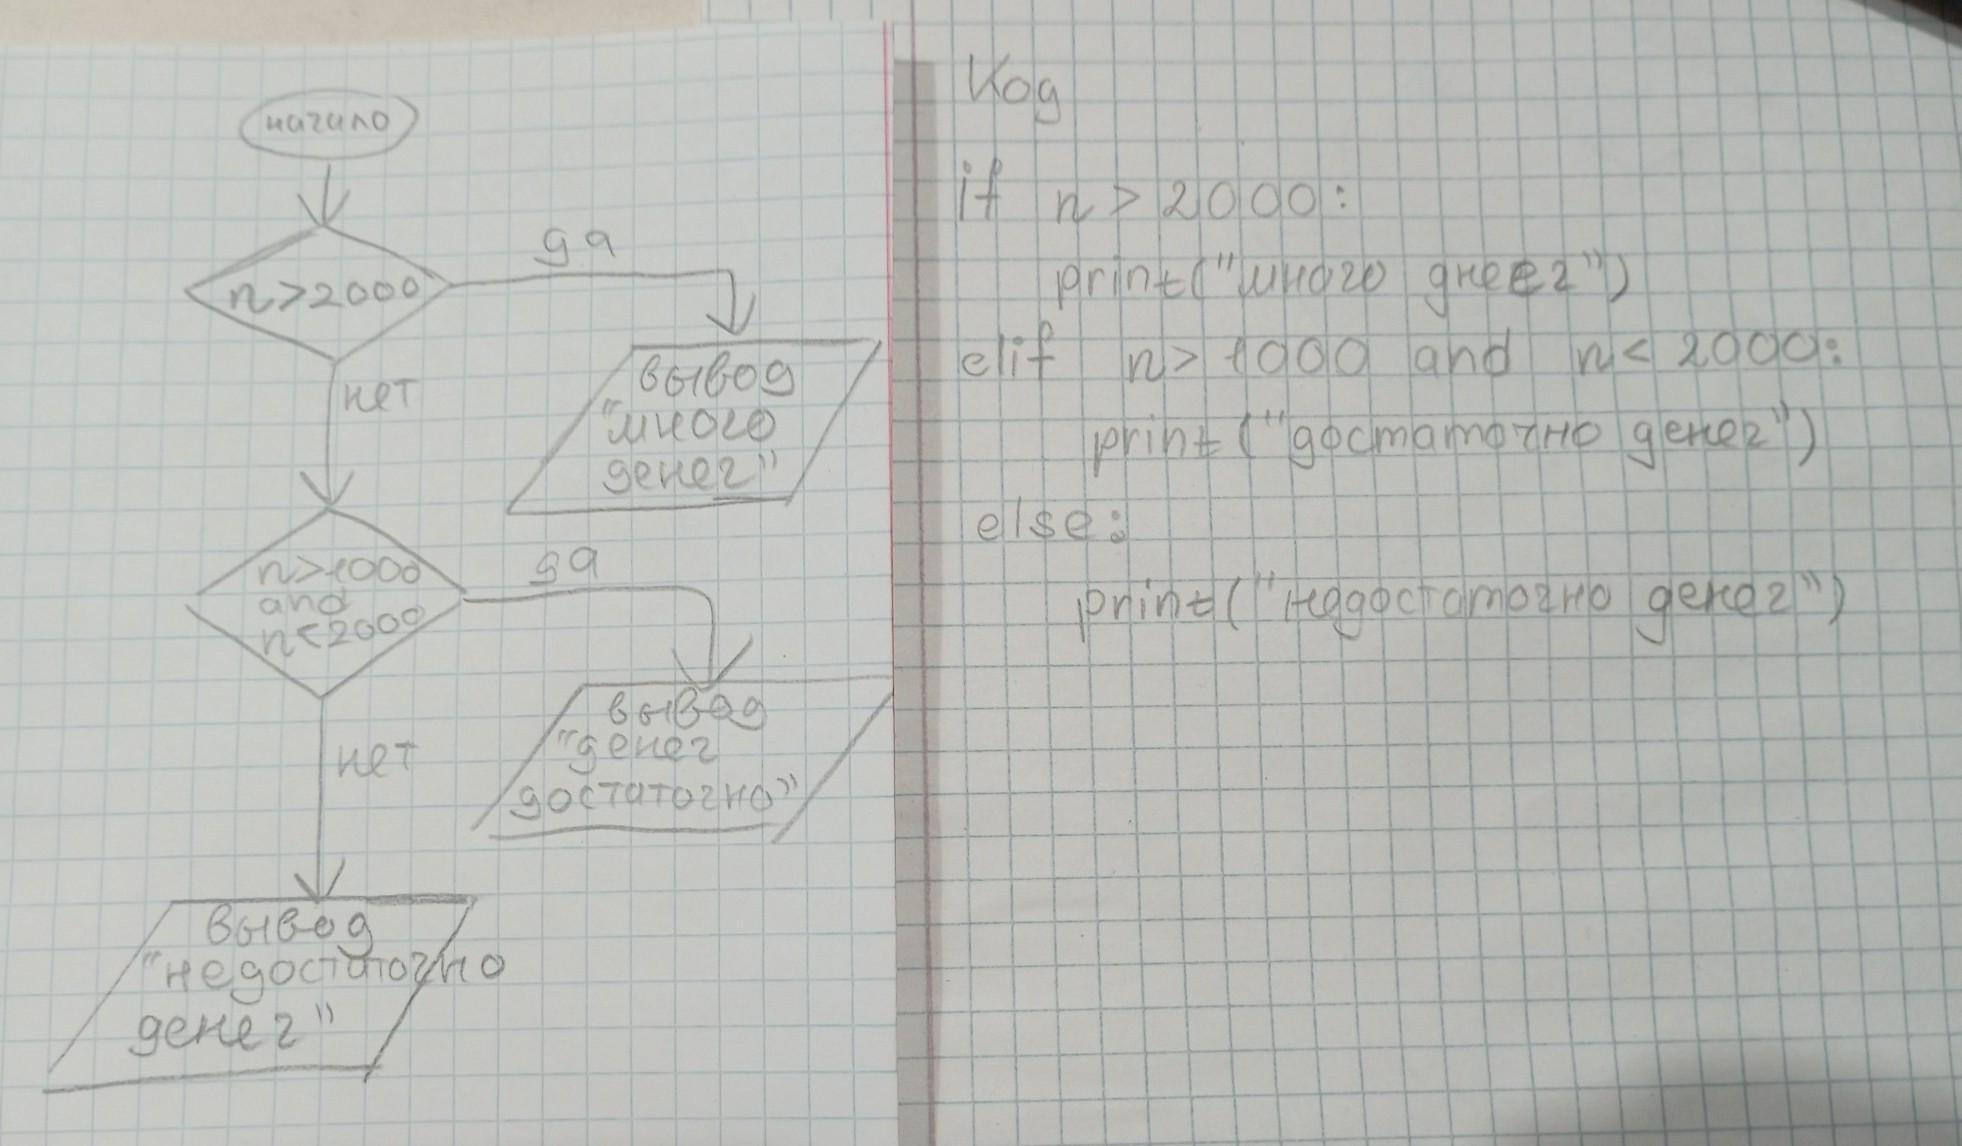 начало
n>2000
да
нет
вывод
"много
денег"
n>1000
and
n<2000
да
нет
вывод
"денег
достаточно"
вывод
"недостаточно
денег"
Код
if n > 2000:
print("много днеег")
elif n> 1000 and n< 2000:
print ("достаточно денег")
else:
print("недостаточно денег")